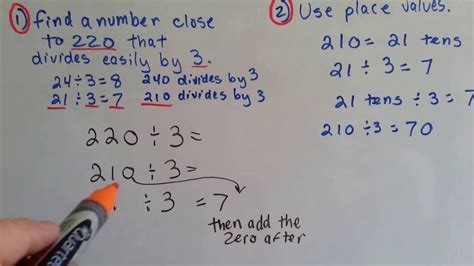 1) find a number close
to 220 that
divides easily by 3.
24÷3=8 240 divides by 3
21÷3=7 210 divides by 3
220÷3=
210÷3=
÷3=7
then add the
zero after
2) Use place values.
210=21 tens
21÷3=7
21 tens÷3=7
210÷3=70